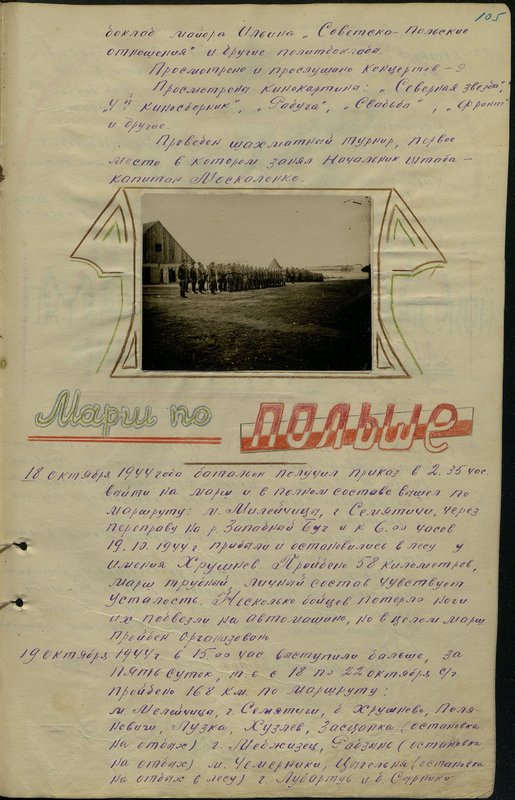 105
доклад майора Ильина „Советско-Польские
отношения" и другие политдоклады.
Просмотрено и прослушано концертов - 9
Просмотрена кинокартина: „Северная звезда",
„ киносборник", „Радуга", „Свадьба", „Фронт"
и другие.
Проведен шахматный турнир, первое
место в котором занял Начальник штаба -
капитан Москаленко.
Марш по Польше
18 октября 1944 года батальон получил приказ в 2.35 час.
выйти на марш и в полном составе вышел по
маршруту: м. Милейчица, г. Семятичи, через
переправу на р. Западный Буг и к 6.00 часов
19.10.1944 г. прибыли и остановились в лесу у
имения Хрушнев. Пройдено 58 километров,
марш трудный, личный состав чувствует
усталость. Несколько бойцов потерло ноги
их подвезли на автомашине, но в целом марш
пройден организованно
19 октября 1944 г. в 15.00 час выступили дальше, за
пять суток, т.е. с 18 по 22 октября с/г
пройдено 168 км. по маршруту:
м. Мелейчица, г. Семятичи, д. Хрушнево, Поля-
новичи, Лузка, Хузлев, Засцапка (остановка
на отдых) г. Меджизец, Радзинь (остановка
на отдых) м. Чемерники, Цигельня (остановка
на отдых в лесу) г. Лубартув и д. Сырники